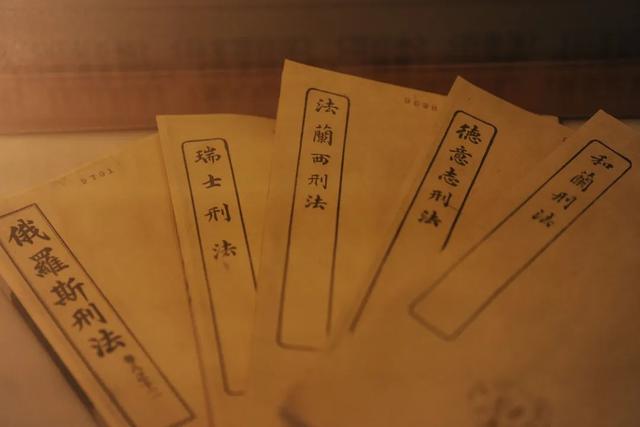 俄羅斯刑法
瑞士刑法
法蘭西刑法
德意志刑法
和蘭刑法